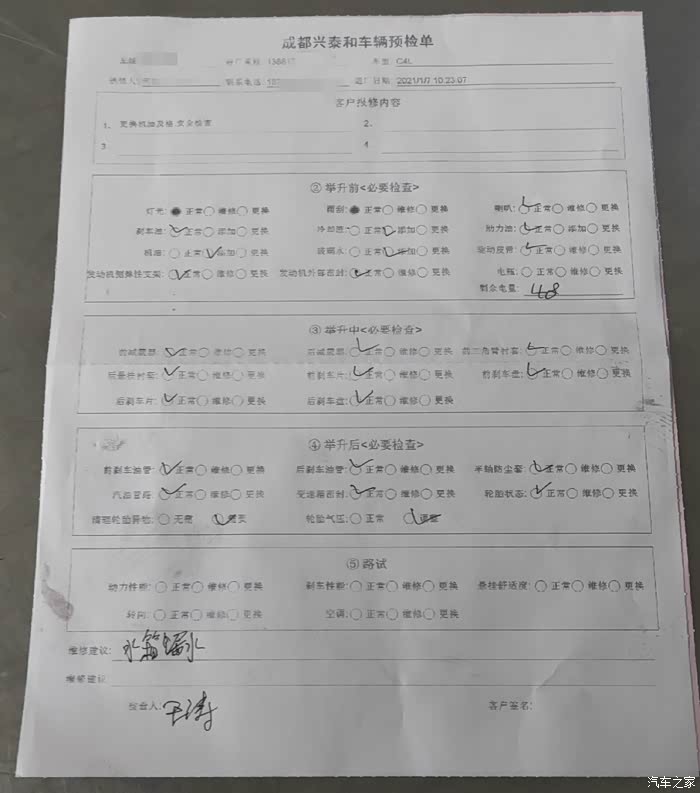 成都兴泰和车辆预检单
车牌 进厂里程: 138817 车型: C4L
联系电话: 进厂日期: 2021/1/7 10:23:07
客户报修内容
1、更换机油及格,安全检查 2、
3 4
② 举升前<必要检查>
灯光: 正常 维修 更换 雨刮: 正常 维修 更换 喇叭: 正常 维修 更换
刹车油: 正常 添加 更换 冷却液: 正常 添加 更换 助力油: 正常 维修 更换
机油: 正常 添加 更换 玻璃水: 正常 添加 更换 驱动皮带: 正常 维修 更换
发动机脚胶支架: 正常 维修 更换 发动机外部密封: 正常 维修 更换 电瓶: 正常 维修 更换
剩余电量: 408
③ 举升中<必要检查>
前减震器: 正常 维修 更换 后减震器: 正常 维修 更换 前三角臂衬套: 正常 维修 更换
后悬挂衬套: 正常 维修 更换 前刹车片: 正常 维修 更换 前刹车盘: 正常 维修 更换
后刹车片: 正常 维修 更换 后刹车盘: 正常 维修 更换
④ 举升后<必要检查>
前刹车油管: 正常 维修 更换 后刹车油管: 正常 维修 更换 半轴防尘套: 正常 维修 更换
汽油管路: 正常 维修 更换 变速箱密封: 正常 维修 更换 轮胎状态: 正常 维修 更换
清理轮胎异物: 无需 需要 轮胎气压: 正常 调整
⑤ 路试
动力性能: 正常 维修 更换 刹车性能: 正常 维修 更换 悬挂舒适度: 正常 维修 更换
转向: 正常 维修 更换 空调: 正常 维修 更换
维修建议: 水箱漏水
维修建议
检查人: 王涛 客户签名:
汽车之家